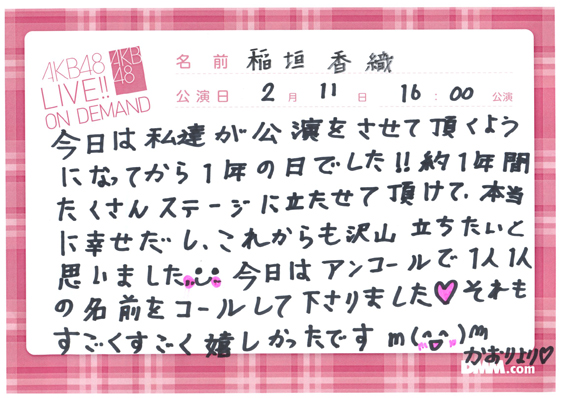 AKB48
LIVE!!
ON DEMAND
AKB
48
名前 稲垣香織
公演日 2月11日 16:00公演
今日は私達が公演をさせて頂くよう
になってから1年の日でした!!約1年間
たくさんステージに立たせて頂けて、本当
に幸せだし、これからも沢山立ちたいと
思いました 今日はアンコールで1人1人
の名前をコールして下さりました♥それも
すごくすごく嬉しかったです m(^^)m
かおりより♡
DMM.com